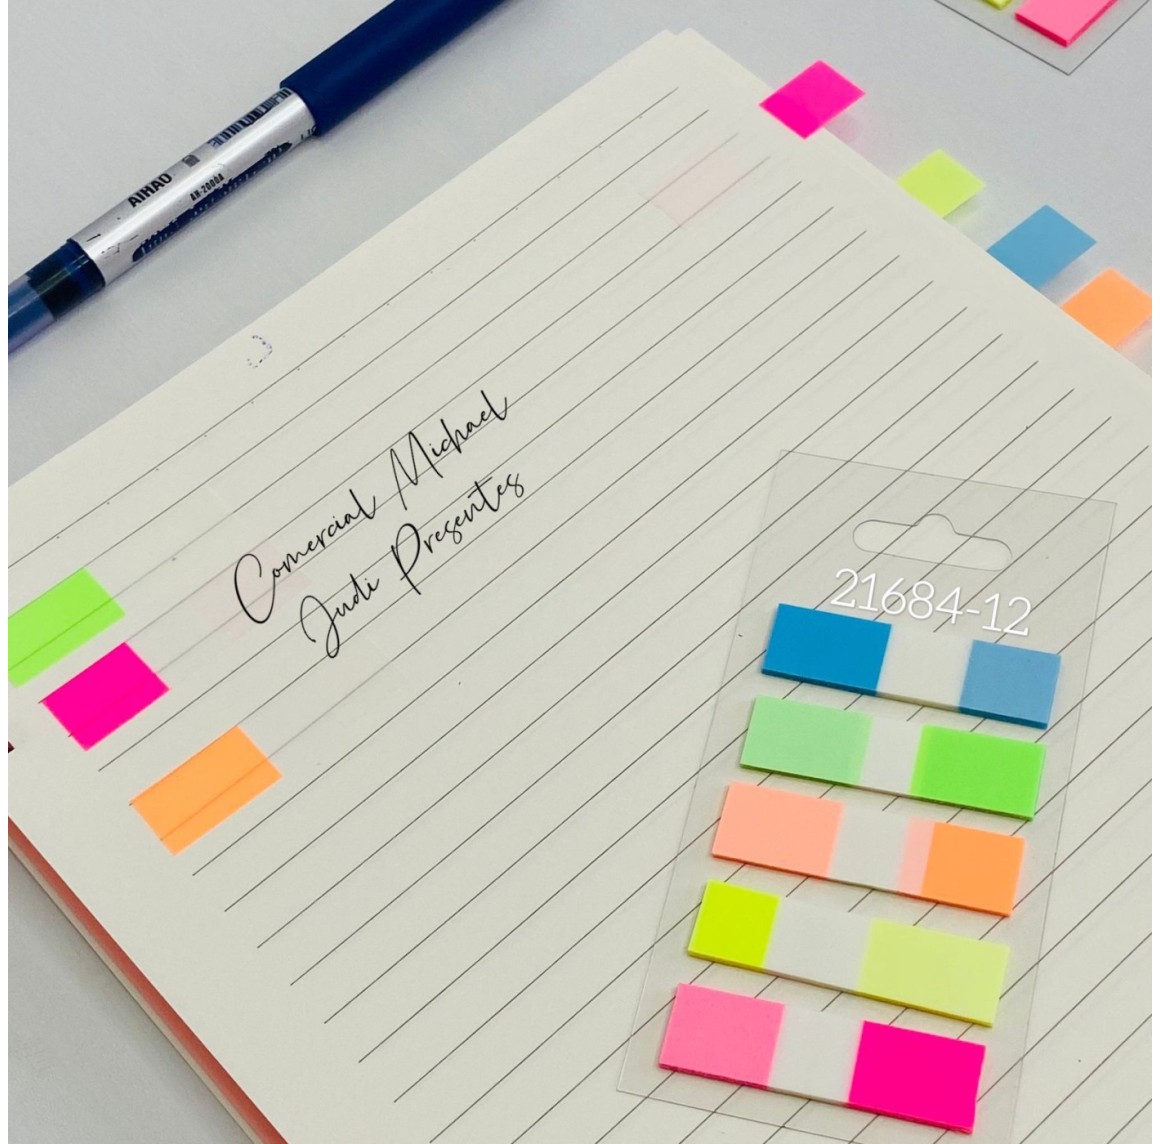 AIHAO
AH-2000A
Comercial Michael
Judi Presentes
21684-12